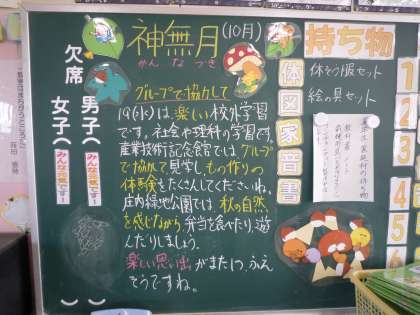 神無月(10月)
かんなづき
グループで協力して
19(水)は楽しい校外学習
です。社会や理科の学習です。
産業技術記念館では、グループ
で協力して見学し、もの作りの
体験をたくさんしてくださいね。
庄内緑地公園では、秋の自然
を感じながら、弁当を食べたり、遊
んだりしましょう。
楽しい思い出がまた1つ、ふえ
そうですね。
欠席
男子(
みんな元気です!
女子(
みんな元気です!
持ち物
体
図
家
音
書
体そう服セット
絵の具セット
教科書
1
2
3
4
5
6